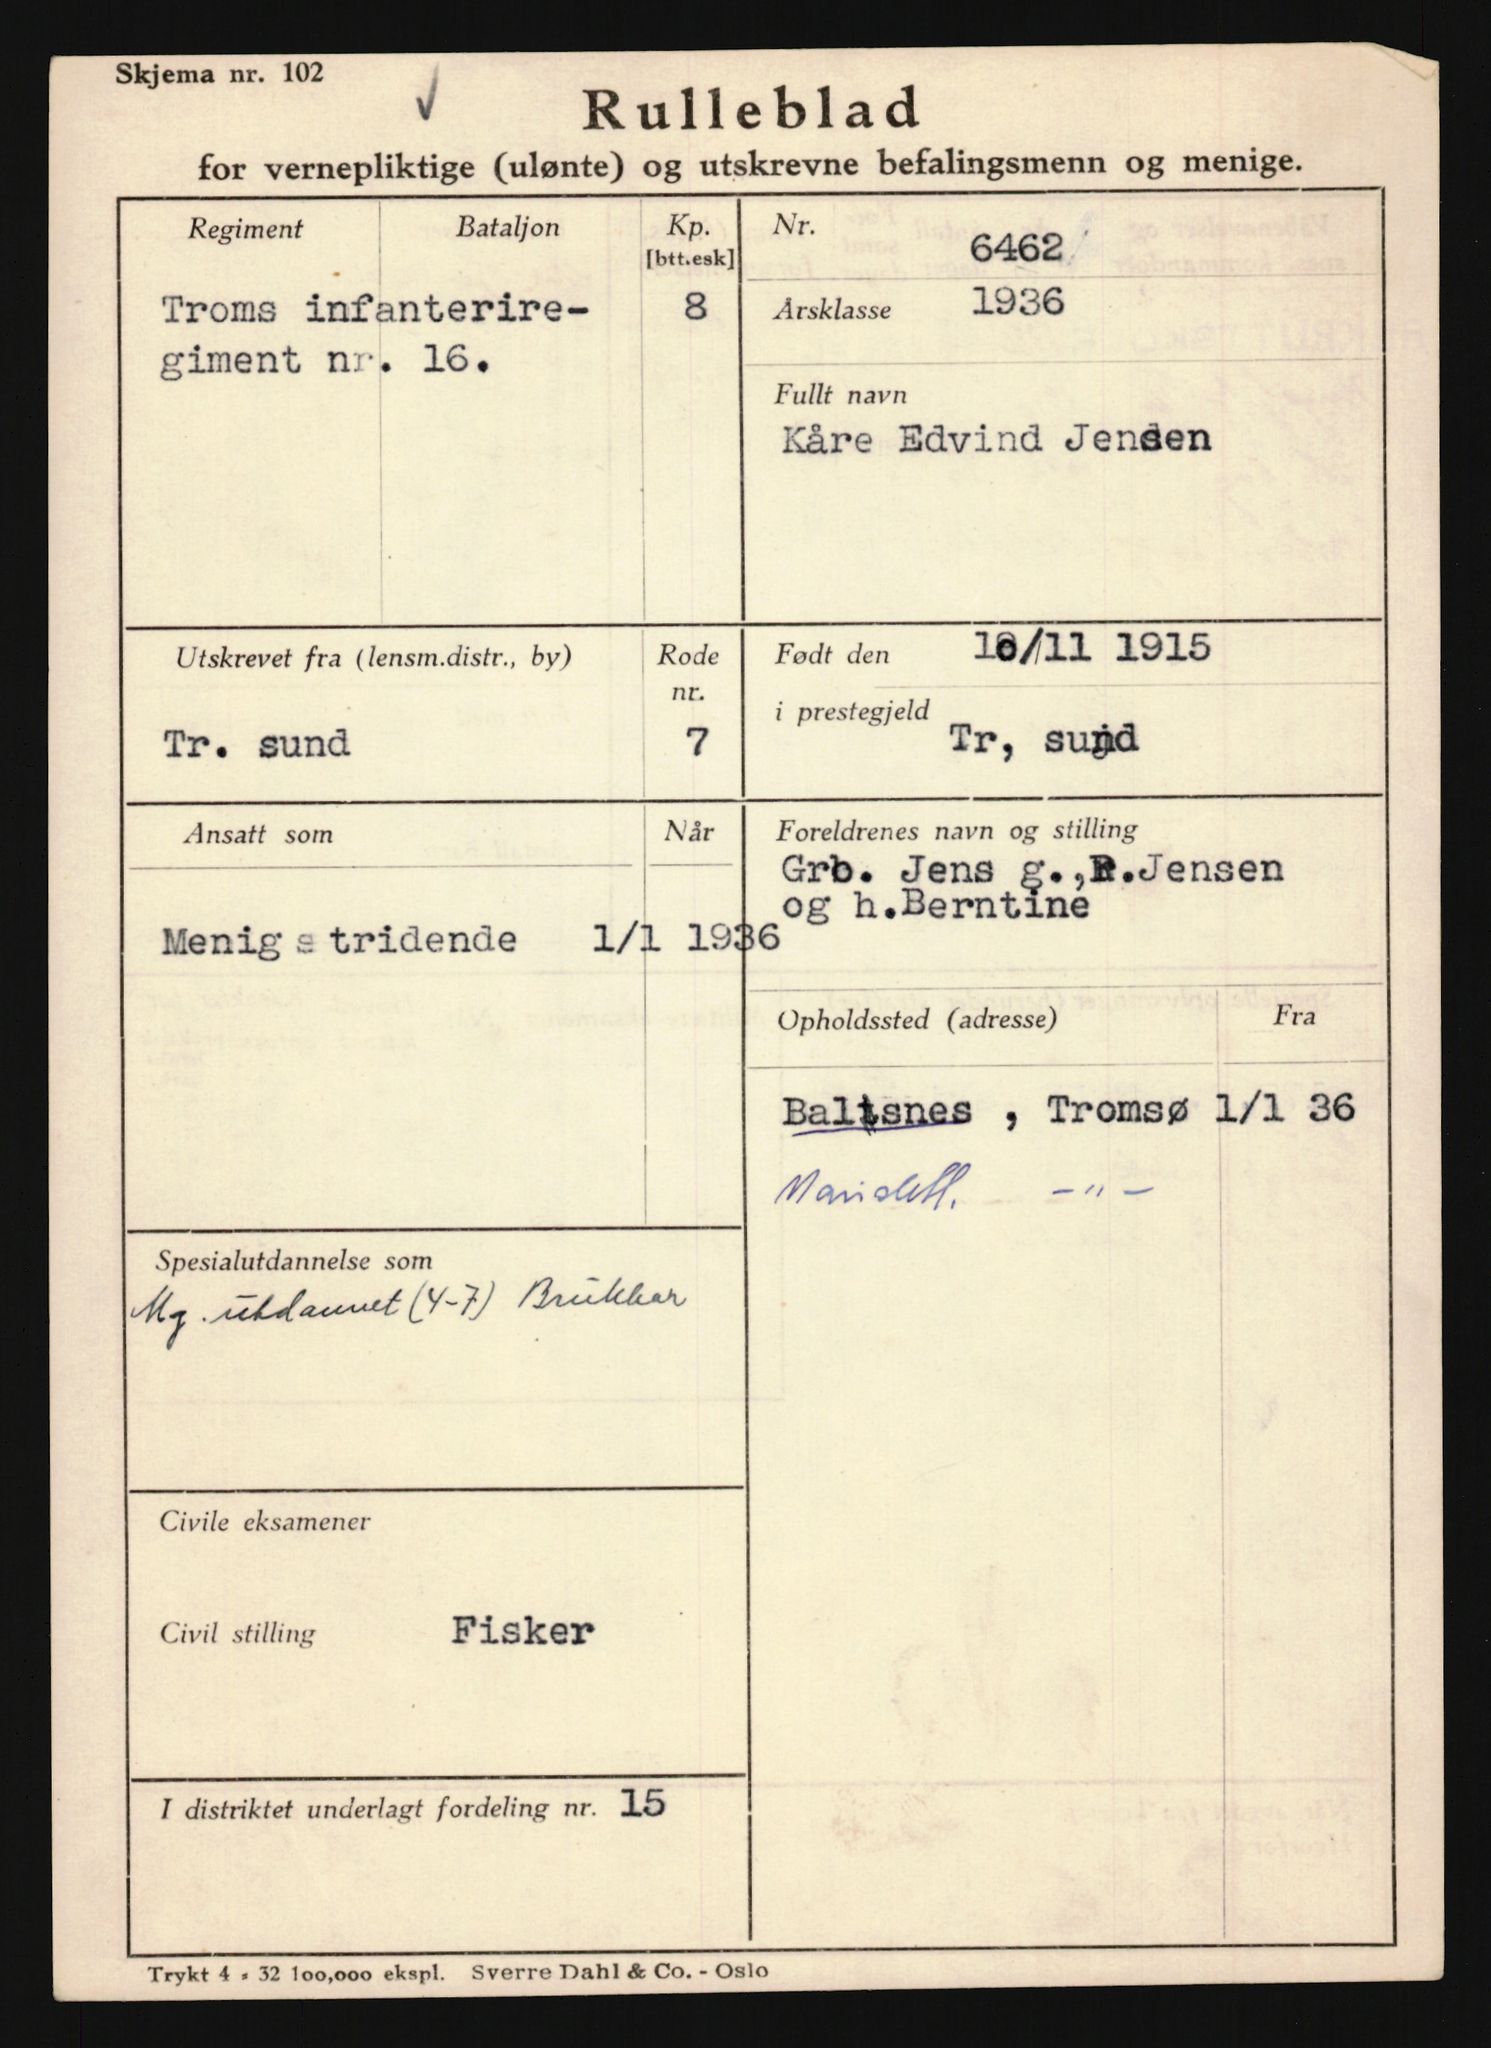 Skjema nr. 102
Rulleblad
for vernepliktige (ulønte) og utskrevne befalingsmenn og menige.
Regiment Bataljon Kp. [btt.esk]
Troms infanterire- 8
giment nr. 16.
Nr. 6462
Årsklasse 1936
Fullt navn
Kåre Edvind Jensen
Utskrevet fra (lensm.distr., by) Rode nr.
Tr. sund 7
Født den /11 1915
i prestegjeld Tr, sund
Ansatt som Når
Menig stridende 1/1 1936
Foreldrenes navn og stilling
Grb. Jens g., Jensen
og h.Berntine
Opholdssted (adresse) Fra
Baltsnes , Tromsø 1/1 36
-"-
Spesialutdannelse som
Mg. utdannet (4-7) Brukbar
Civile eksamener
Civil stilling Fisker
I distriktet underlagt fordeling nr. 15
Trykt 4 - 32 100,000 ekspl. Sverre Dahl & Co. - Oslo